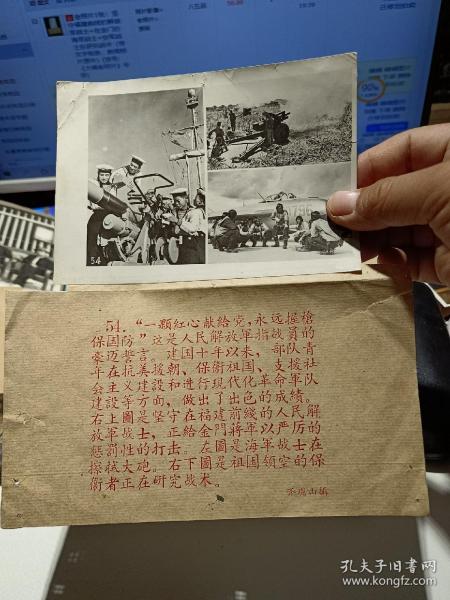 54
54. “一顆紅心献給党，永远握槍
保国防”这是人民解放軍指战員的
豪迈誓言。建国十年以来，部队青
年在抗美援朝、保衛祖国、支援社
会主义建設和进行現代化革命軍队
建設等方面，做出了出色的成績。
右上圖是坚守在福建前綫的人民解
放軍战士，正給金門蔣軍以严厉的
懲罰性的打击。左圖是海軍战士在
擦拭大炮。右下圖是祖国領空的保
衛者正在研究战术。
孔夫子旧书网
www.kongfz.com